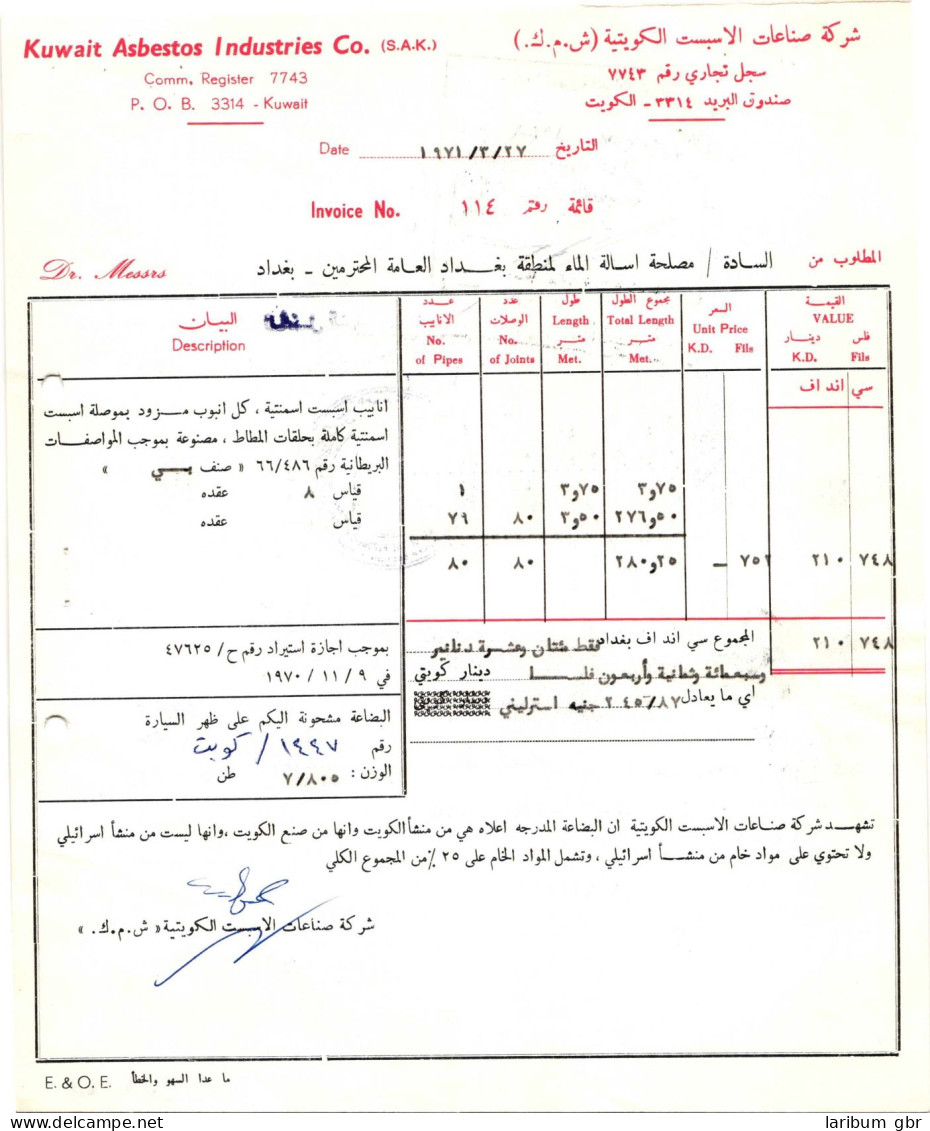 Kuwait Asbestos Industries Co. (S.A.K.)
Comm. Register 7743
P. O. B. 3314 - Kuwait
شركة صناعات الاسبست الكويتية (ش.م.ك.)
سجل تجاري رقم ٧٧٤٣
صندوق البريد ٣٣١٤ - الكويت
Date ١٩٧١/٣/٢٧ التاريخ
Invoice No. ١١٤ قائمة رقم
Dr. Messrs السادة / مصلحة اسالة الماء لمنطقة بغداد العامة المحترمين - بغداد المطلوب من
البيان
Description
عدد الانابيب
No. of Pipes
عدد الوصلات
No. of Joints
طول
Length
متر
Met.
مجموع الطول
Total Length
متر
Met.
السعر
Unit Price
K.D. Fils
القيمة
VALUE
دينار فلس
K.D. Fils
سي اند اف
انابيب اسبست اسمنتية ، كل انبوب مزود بموصلة اسبست
اسمنتية كاملة بحلقات المطاط ، مصنوعة بموجب المواصفات
البريطانية رقم ٦٦/٤٨٦ « صنف بي »
قياس ٨ عقده ١ ٣و٧٥ ٣و٧٥
قياس عقده ٧٩ ٨٠ ٣و٥٠ ٢٧٦و٥٠
٨٠ ٨٠ ٢٨٠و٢٥ — ٧٥٢ ٢١٠ ٧٤٨
المجموع سي اند اف بغداد فقط مئتان وعشرة دنانير ٢١٠ ٧٤٨
وسبعمائة وثمانية وأربعون فلسا دينار كويتي
اي ما يعادل ٢٤٥/٨٧ جنيه استرليني
بموجب اجازة استيراد رقم ح/ ٤٧٦٢٥
في ٩ / ١١ / ١٩٧٠
البضاعة مشحونة اليكم على ظهر السيارة
رقم ١٤٤٧ / كويت
الوزن : ٧/٨٠٥ طن
تشهد شركة صناعات الاسبست الكويتية ان البضاعة المدرجه اعلاه هي من منشأ الكويت وانها من صنع الكويت ، وانها ليست من منشأ اسرائيلي
ولا تحتوي على مواد خام من منشأ اسرائيلي ، وتشمل المواد الخام على ٢٥ ٪ من المجموع الكلي
شركة صناعات الاسبست الكويتية « ش.م.ك. »
E. & O. E. ما عدا السهو والخطأ
laribum gbr